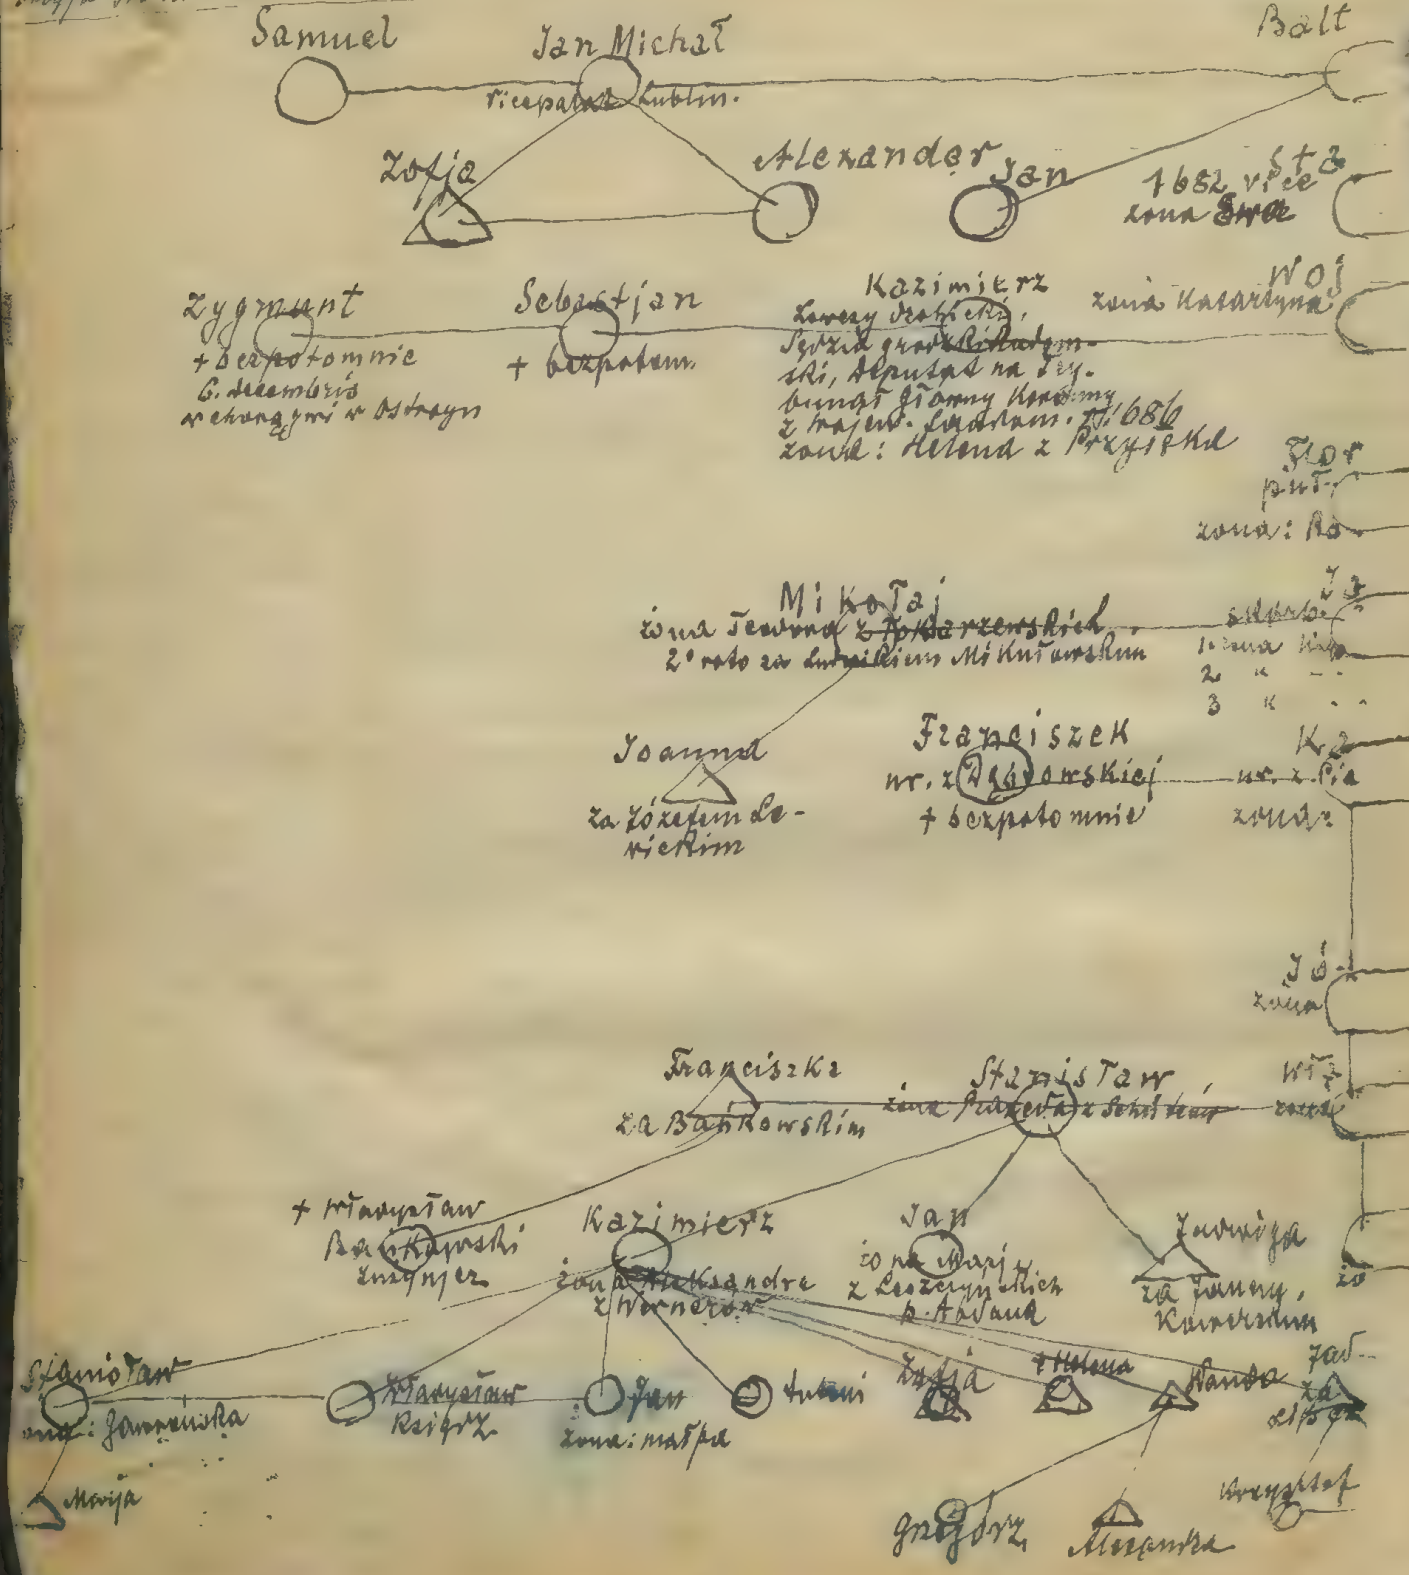 Samuel
Jan Michał
Balt
vicepalat Lublin.
Zofja
Alexander
Jan
Sta
1682 vice
żona Ewa
Zygmunt
+ bezpotomnie
6. decembris
w chorągwi w Ostrogu
Sebastjan
+ bezpotom.
Kazimierz
Łowczy
Sędzia grodzki Radom-
ski, Deputat na Try-
bunał Główny Koronny
z wojew. Sandom. r. 1686
żona: Helena z Przyłęka
Woj
żona Katarzyna
Flor
puł.
żona: Ro
Mikołaj
żona Teodora z
2° voto za Ludwikiem Mikułowskim
1. żona
2 " - -
3 " - -
Joanna
za Józefem Le-
wickim
Franciszek
ur. z Dąbrowskiej
+ bezpotomnie
Ka
ur. z Pia
żona:
Jó
żona
Franciszka
za Bańkowskim
Stanisław
żona
Wła
żona
+ Władysław
Bańkowski
inżynjer
Kazimierz
żona Aleksandra
z Wernerów
Jan
żona Marja
z Leszczyńskich
h. Abdank
Jadwiga
za
żo
Stanisław
Władysław
Ksiądz
Jan
żona: małpa
Zofja
+ Helena
Wanda
Jad-
za
Marija
Grzegorz
Krzysztof